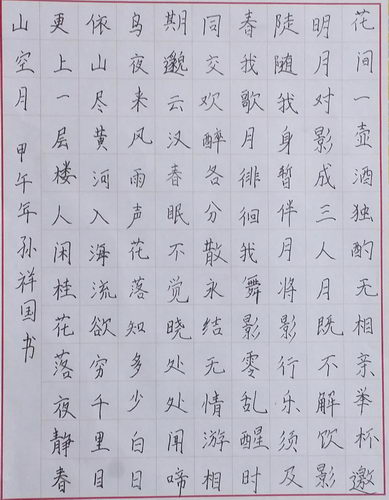 花间一壶酒独酌无相亲举杯邀
明月对影成三人月既不解饮影
陡随我身暂伴月将影行乐须及
春我歌月徘徊我舞影零乱醒时
同交欢醉各分散永结无情游相
期邈云汉春眠不觉晓处处闻啼
鸟夜来风雨声花落知多少白日
依山尽黄河入海流欲穷千里目
更上一层楼人闲桂花落夜静春
山空月 甲午年孙祥国书